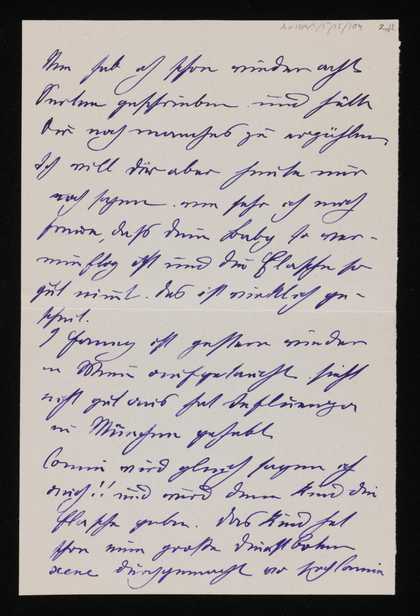 Nun hab ich schon wieder acht
Seiten geschrieben und hätte
Dir noch manches zu erzählen.
Ich will dir aber heute nur
noch sagen, wie sehr ich mich
freue, daß dein Baby so ver-
nünftig ist und die Flasche so
gut nimmt. das ist wirklich ge-
scheit.
Fanny ist gestern wieder
in Wien aufgetaucht, sieht
nicht gut aus hat Influenza
in München gehabt.
wird gleich sagen ich
auch!! und wird dem Kind die
Flasche geben. das Kind hat
schon eine große
scene durchgemacht wo